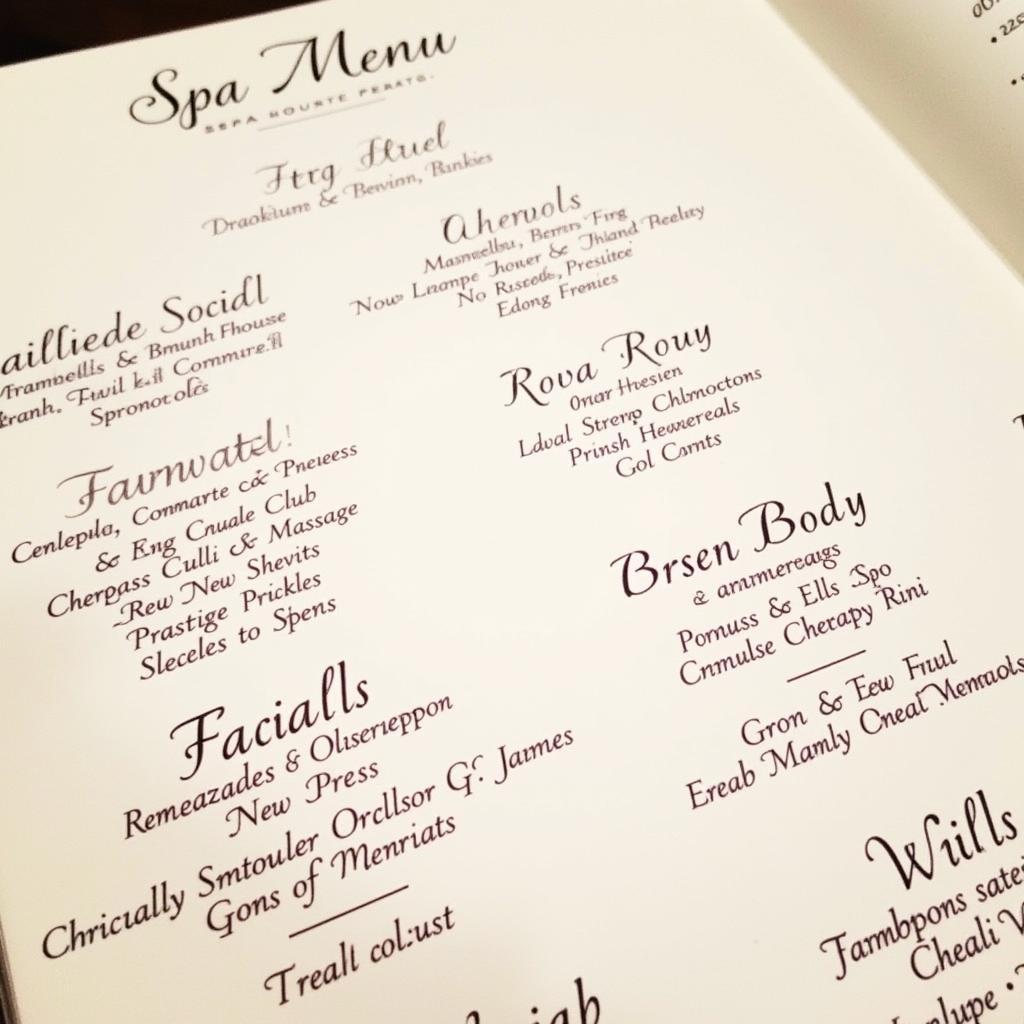 Spa Menu
SEPA HOURTE PERATG.
Ftrg Hruel
Draokiums & Bervinn, Bankies
Ahervols
Masnvellbu, Berrrs Firg
Now Lnompe Thoner & Thland Reelizy
No Riscode, Presiticé
Edong Frenies
ailliede Socidl
Trambellls & Bmunh Fhouse
Spronot olés
Rova Rouy
Onar Htesien
Ldual Strerp Chlmoctons
Prinsh Hewereals
Gol Carnts
Faurnvatel!
Cenlepila, Conmarte cok Pneiess
& Eng Cnuale Club
Cherpass Culli & Massage
Rew New Shevits
Prastige Prickles
Sleceles to Spens
Brsen Body
& arumereaigs
Pomuss & Ells Spo
Cnmulse Cherapy Rini
Gron & Eew Fruul
Ereab Mamly Cneal Memraols
Facialls
Remeazades & Oliserieppon
New Press
Chricially Smtouler Orcllsor G? James
Gons of Menriats
Treall col:ust
Wiills
Tarmbpons sate
Cheali